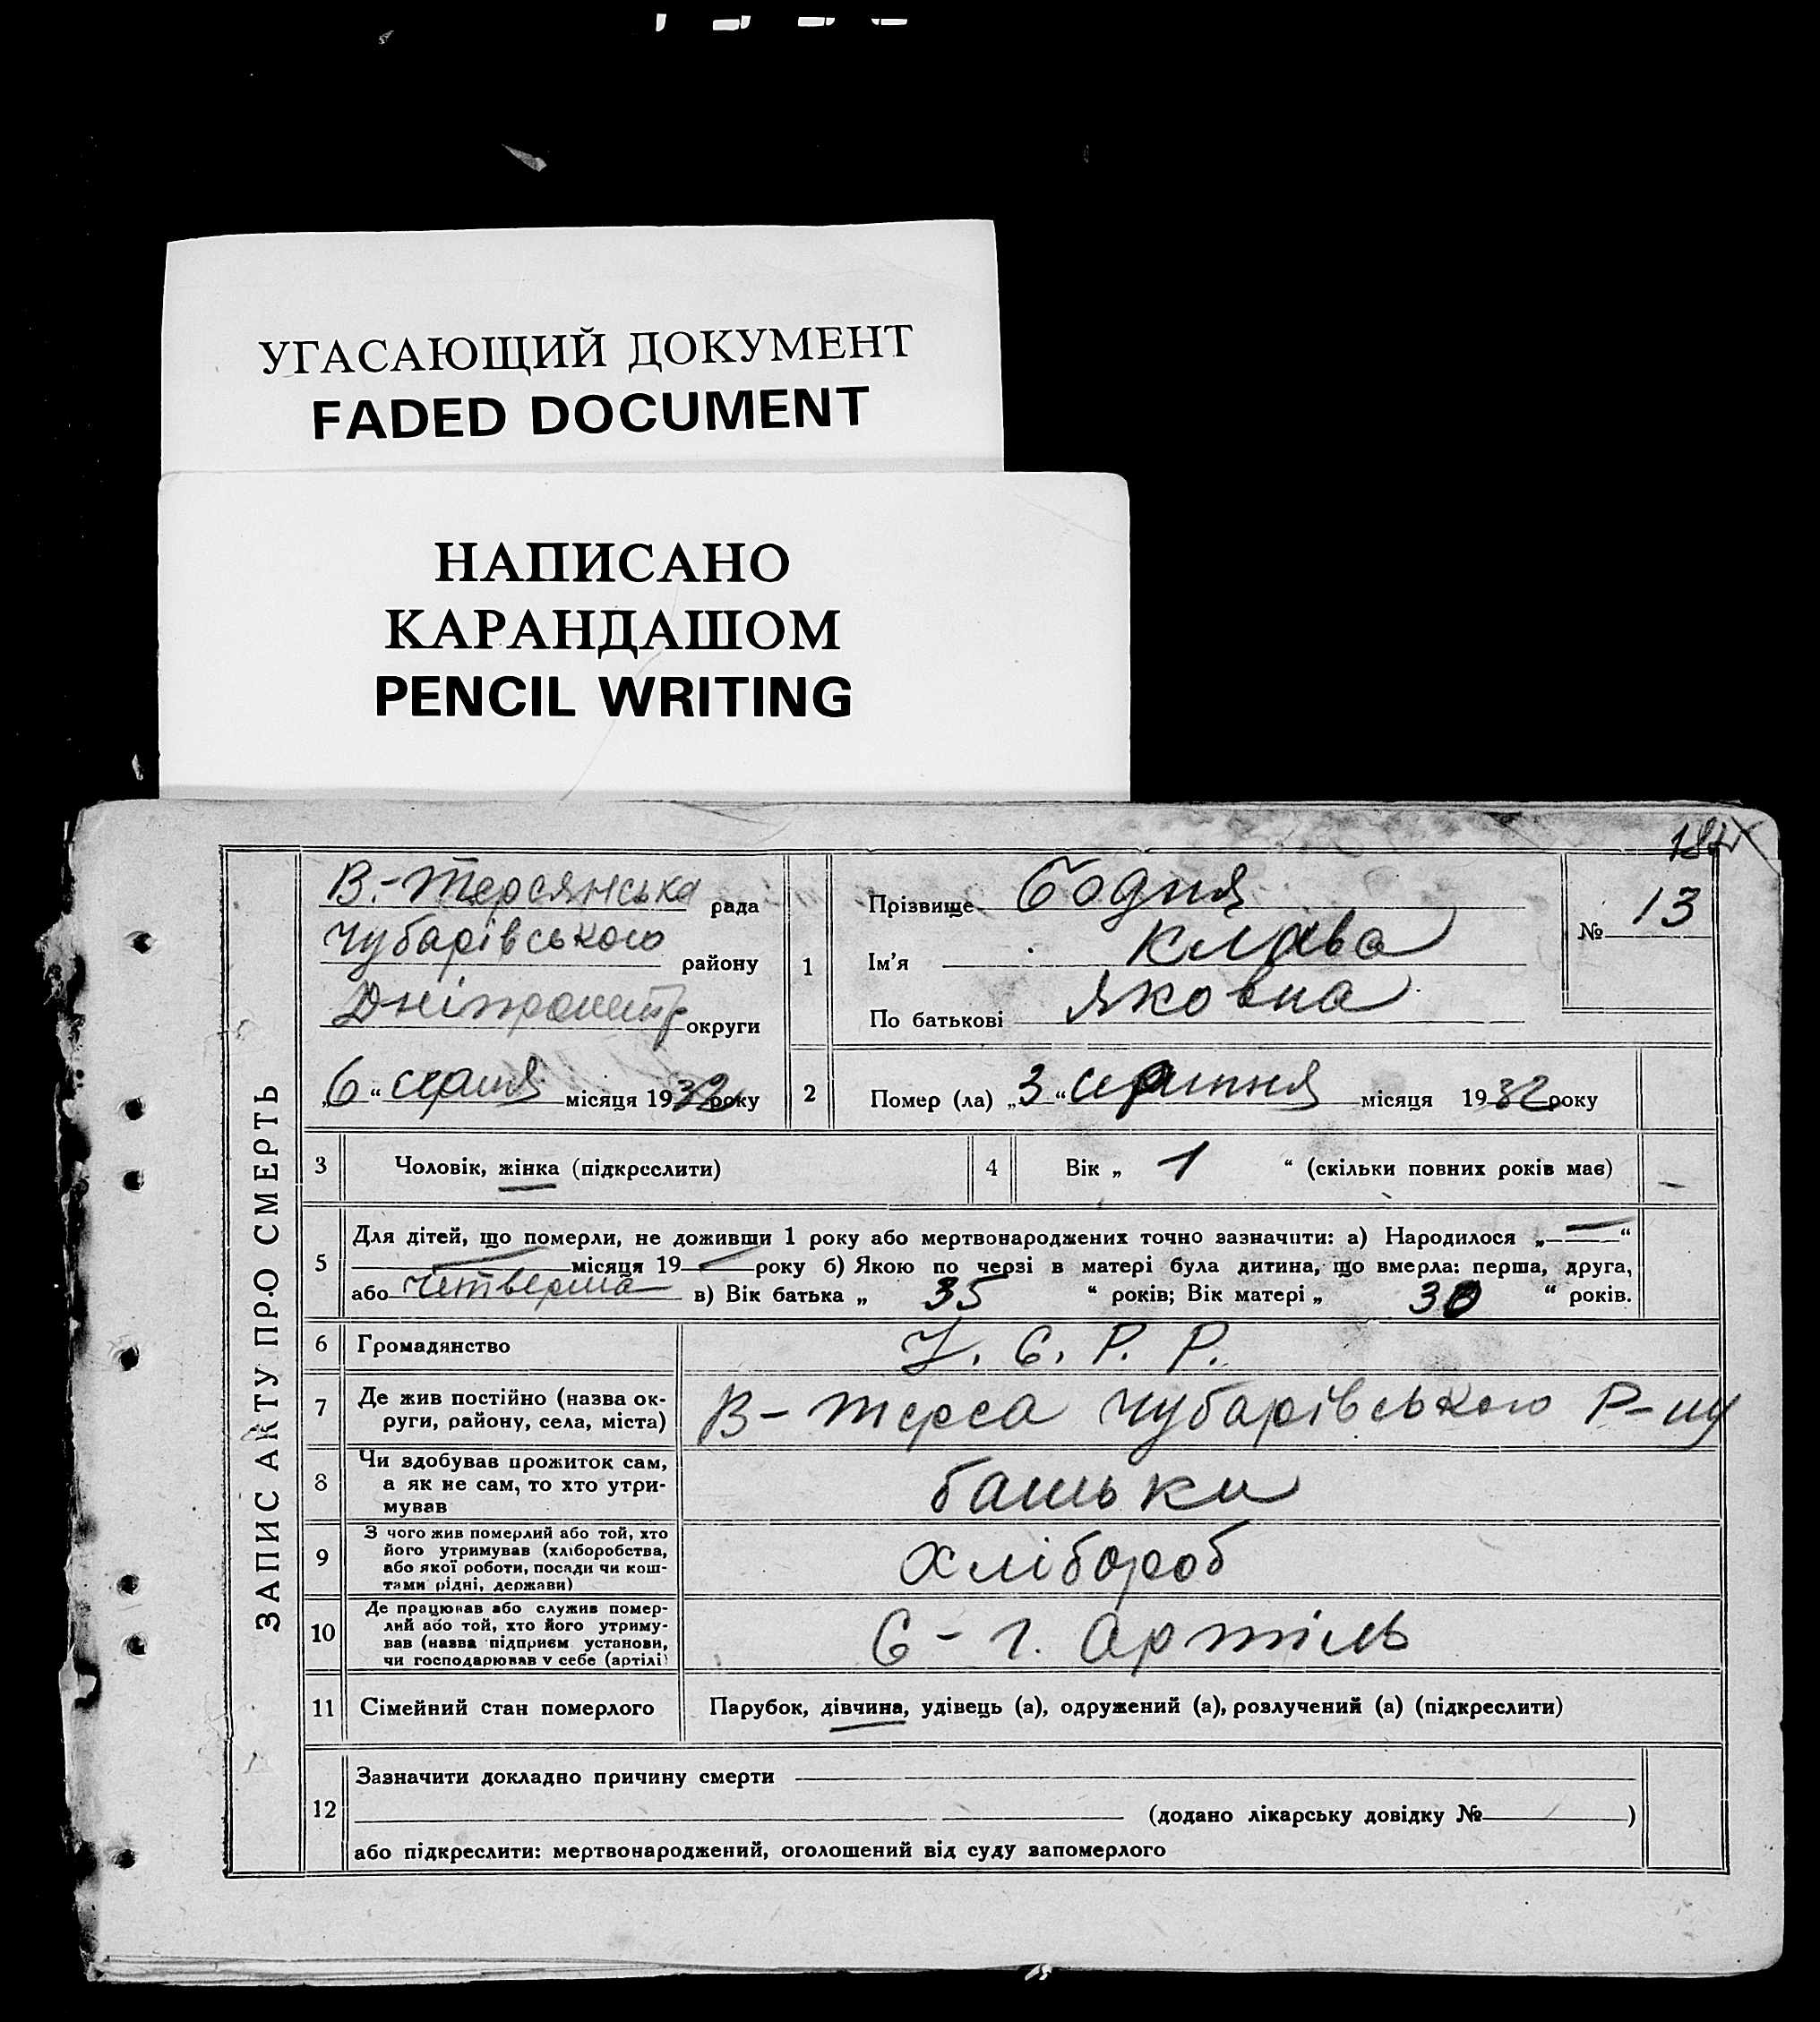 УГАСАЮЩИЙ ДОКУМЕНТ
FADED DOCUMENT
НАПИСАНО
КАРАНДАШОМ
PENCIL WRITING
ЗАПИС АКТУ ПРО СМЕРТЬ
В.-Терсянська рада
Чубарівського району
округи
„6“ серпня місяця 1932 року
1
Прізвище Бодня
Ім'я Клава
По батькові Яковна
№ 13
2 Помер (ла) „3“ серпня місяця 1932 року
3 Чоловік, жінка (підкреслити)
4 Вік „1“ (скільки повних років має)
5 Для дітей, що померли, не доживши 1 року або мертвонароджених точно зазначити: а) Народилося „—“
— місяця 19— року б) Якою по черзі в матері була дитина, що вмерла: перша, друга,
або четверта в) Вік батька „35“ років; Вік матері „30“ років.
6 Громадянство У. С. Р. Р.
7 Де жив постійно (назва ок-
руги, району, села, міста) В-Терса Чубарівського Р-ну
8 Чи здобував прожиток сам,
а як не сам, то хто утри-
мував батьки
9 З чого жив померлий або той, хто
його утримував (хліборобства,
або якої роботи, посади чи кош-
тами рідні, держави) Хлібороб
10 Де працював або служив помер-
лий або той, хто його утриму-
вав (назва підприєм. установи,
чи господарював у себе (артілі) С-г. Артіль
11 Сімейний стан померлого Парубок, дівчина, удівець (а), одружений (а), розлучений (а) (підкреслити)
12 Зазначити докладно причину смерти
(додано лікарську довідку № )
або підкреслити: мертвонароджений, оголошений від суду запомерлого